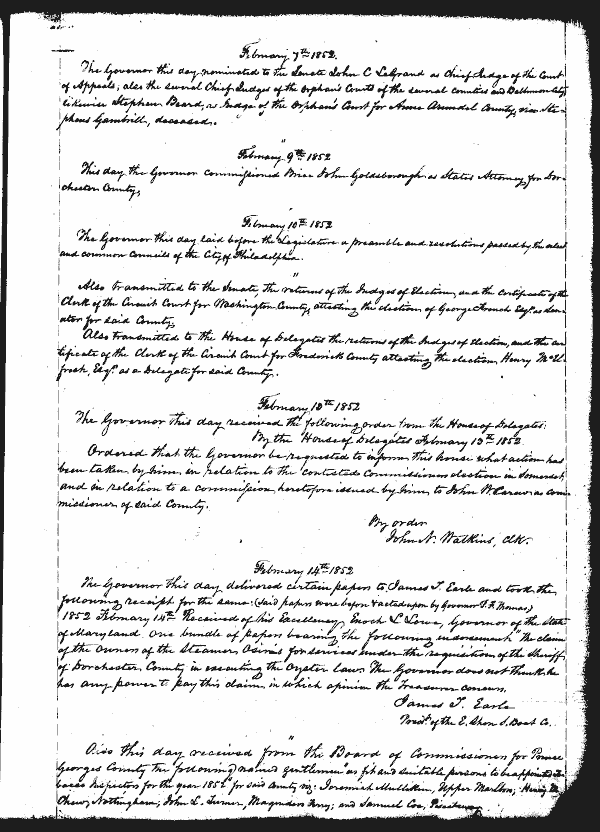 February 7th 1852.
The Governor this day nominated to the Senate John C LeGrand as Chief Judge of the Court
of Appeals; also the several Chief Judges of the Orphan's Courts of the several counties and Baltimore City
likewise Stephen Beard, as Judge of the Orphan's Court for Anne Arundel County, vice Ste-
phens Gambrill, deceased.
"
February 9th 1852
This day the Governor commissioned Brice John Goldsborough as States Attorney for Dor-
chester County,
February 10th 1852
The Governor this day laid before the Legislature a preamble and resolutions passed by the select
and common Councils of the City of Philadelphia.
"
Also transmitted to the Senate the returns of the Judges of Election, and the certificate of the
Clerk of the Circuit Court for Washington County, attesting the election of George French Esqr. as Sen-
ator for said County,
Also transmitted to the House of Delegates the returns of the Judges of election, and the cer-
tificate of the Clerk of the Circuit Court for Frederick County attesting the election Henry
Esqr. as a Delegate for said County.
February 13th 1852
The Governor this day received the following order from the House of Delegates:
By the House of Delegates February 13th 1852
Ordered that the Governor be requested to inform this house what action has
been taken by him in relation to the contested Commissioners election in Somerset,
and in relation to a commission heretofore issued by him to John W. as com
missioner of said County.
By order
John N. Watkins, clk.
February 14th 1852
The Governor this day delivered certain papers to James T. Earle and took the
following receipt for the same: (Said papers were before & acted upon by Governor P. F. Thomas,)
1852 February 14th Received of his Excellency, Enoch L. Lowe, Governor of the State
of Maryland one bundle of papers bearing the following endorsement "The claim
of the Owners of the Steamer Osiris for services under the requisition of the Sheriff
of Dorchester County in executing the Oyster law. The Governor does not think he
has any power to pay this claim, in which opinion the Treasurer concurs.
James T. Earle
Presdt. of the E. Shore S. Boat Co.
"
Also this day received from the Board of Commissioners for Prince
Georges County the following named gentlemen "as fit and suitable persons to be appointed To
bacco Inspectors for the year 1852" for said County viz: Jeremiah Mullikin, Upper Marlbro; Henry M.
Chew, Nottingham; John L. Turner, Magruders Ferry; and Samuel Cox, Piscataway